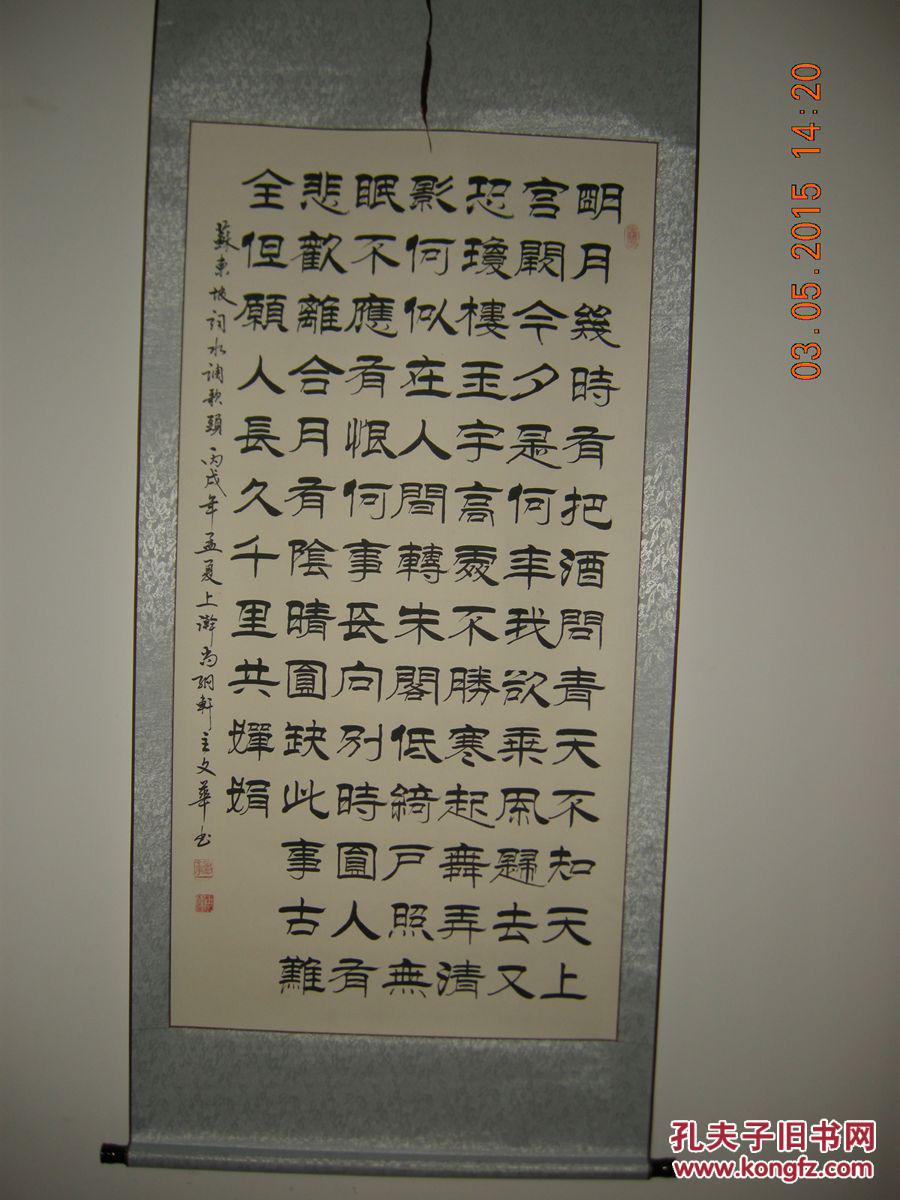 明月幾時有把酒問青天不知天上
宮闕今夕是何年我欲乘風歸去又
恐瓊樓玉宇高處不勝寒起舞弄清
影何似在人間轉朱閣低綺戶照無
眠不應有恨何事長向別時圓人有
悲歡離合月有陰晴圓缺此事古難
全但願人長久千里共嬋娟
蘇東坡詞水調歌頭丙戌年孟夏上澣尚綱軒主文華书
03.05.2015 14:20
孔夫子旧书网
www.kongfz.com